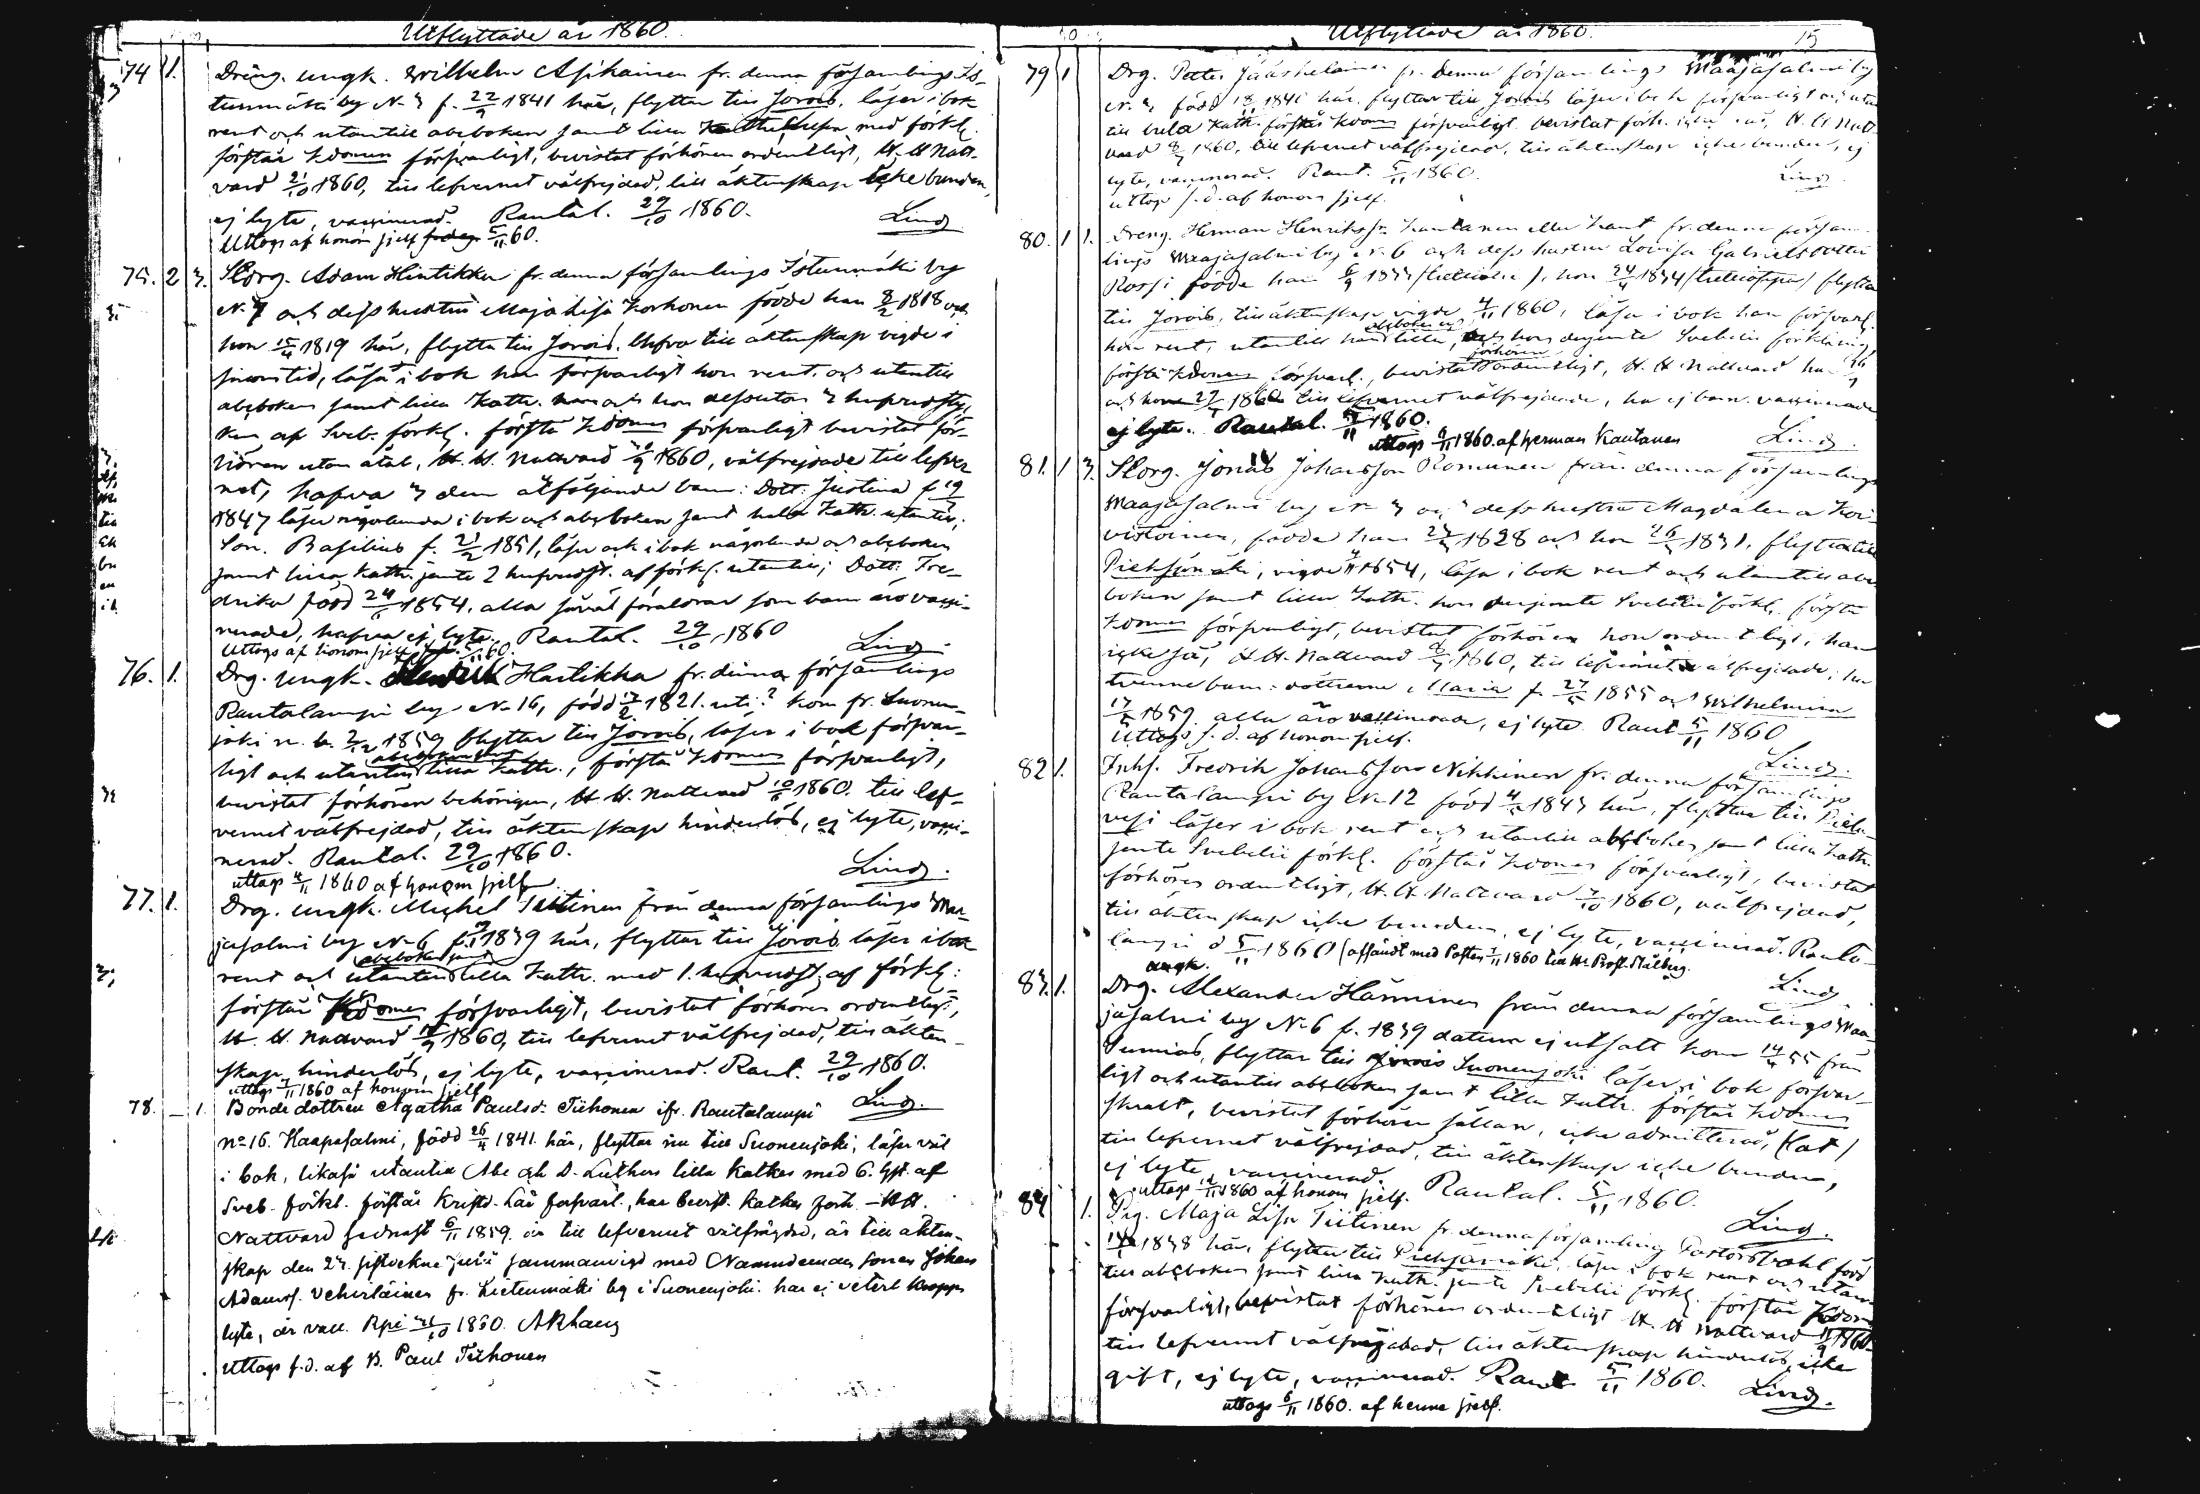 Utflyttade år 1860.
74 1. Dräng. ungk. Wilhelm Asikainen fr. denna församlings Is-
tunmäki by N. 3 f. 22/9 1841 här, flyttar till Jorois, läser i bok
rent och utantill abcboken samt lilla med förkl.
förstår Kdomen försvarligt, bevistat förhören ordentligt, H. H. Natt-
vard 21/10 1860, till lefvernet välfrejdad, till äktenskap icke bunden,
ej lyte, vaccinerad. Rautal. 29/10 1860. Lind
Uttogs af honom sjelf 5/11 60.
75. 2 3. Storg. Adam Hintikka fr. denna församlings Istunmäki by
N. 7 och dess hustru Maja Lisa Korhonen födde han 8/2 1818 och
hon 15/4 1819 här, flytta till Jorois. blefvo till äktenskap vigde i
sinom tid, läsa i bok han försvarligt hon rent, och utantill
abcboken samt lilla Kath. och hon dessutom 2 hufvudsty-
ken af Sveb. förkl. förstå Kdomen försvarligt bevistat för-
hören utan åtal, H. H. Nattvard 1860, välfrejdade till lefver-
net, hafva 3 dem åtföljande barn: Dott. Justina f. 19
1847 läser någorlunda i bok och abcboken samt hela Kath. utantill;
Son. Basilius f. 21/2 1851, läser och i bok någorlunda och abcboken
samt lilla Kath. jemte 2 hufvudst. af förkl. utantill; Dott. Fre-
drika född 24 1854. alla såväl föräldrar som barn äro vacci-
nerade, hafva ej lyte. Rautal. 29/10 1860
Uttogs af honom sjelf 5/11 60. Lind.
76. 1. Drg. ungk. Henrik Hartikka fr. denna församlings
Rautalampi by N. 16, född 17/2 1821. uti? kom fr. Suonen-
joki n. b. 1859 flyttar till Jorois, läser i bok försvar-
ligt och utantill lilla Kath., förstår Kdomen försvarligt,
bevistat förhören behörigen, H. H. Nattvard 1860. till lef-
vernet välfrejdad, till äktenskap hinderlös, ej lyte, vacci-
nerad. Rautal. 29/10 1860.
uttogs 4/11 1860 af honom sjelf. Lind.
77. 1. Drg. ungk. Michel Tiitinen från denna församlings Maa-
jasalmi by N. 6 f. 1839 här, flyttar till Jorois läser i bok
abcboken samt
rent och utantill lilla Kath. med 1. hufvudst. af förkl:
förstår Kdomen försvarligt, bevistat förhören ordentligt,
H. H. Nattvard 1860, till lefvernet välfrejdad, till äkten-
skap hinderlös, ej lyte, vaccinerad. Raut. 29/10 1860.
uttogs 7/11 1860 af honom sjelf Lind.
78. – 1. Bonde dottren Agatha Paulsd. Tiihonen ifr. Rautalampi
no 16. Haapasalmi, född 26 1841 här, flyttar nu till Suonenjoki; läser väl
i bok, likaså utantill Abc och D. Luthers lilla Katkes med 6. hst. af
Sveb. förkl. förstår Kristd. Lär försvarl., har bevist. Katkes förh. – HH.
Nattvard sednast 6/11 1859. är till lefvernet välfrägdad, är till äkten-
skap den sammanvigd med Nämndeman sonen Johan
Adamss. Vehviläinen fr. Lietenmäki by i Suonenjoki. har ej veterl. kropps
lyte, är vacc. Rpi 31/10 1860. ARhang
Uttogs s. d. af B. Paul Tiihonen
Utflyttade år 1860. 15
79 1 Drg. Petter Jääskeläinen fr. denna församlings Maajasalmi by
N. 3, född 18 1840 här, flyttar till Jorois läser i bok försvarligt och utan
till hela Kath. förstår Kdomen försvarligt. bevistat förh. H. H. Natt-
vard 8 1860, till lefvernet välfrejdad, till äktenskap icke bunden, ej
lyte, vaccinerad. Raut. 5/11 1860. Lind.
uttogs s. d. af honom sjelf.
80. 1 1. Dreng. Herman Henriksson Kautanen eller Kant fr. denna försam-
lings Maajasalmi by N. 6 och dess hustru Lovisa Gabrielsdotter
Rossi födde han 6/9 , hon 24 1834 flytta
till Jorois, till äktenskap vigde 4/11 1860, läsa i bok han försvarl.
hon rent, utantill han lilla, och hon derjemte Svebelii förklaring
förhören
förstå Kdomen försvarl., bevistat ordentligt, H. H. Nattvard han 16
och hon 27 1860 till lefvernet välfrejdade, ha ej barn. vaccinerade
ej lyte. Rautal. 5/11 1860.
uttogs 6/11 1860. af Herman Kautanen Lind.
81. 1 3. Storg. Jonas Johansson Romunen från denna församlings
Maajasalmi by N. 3 och dess hustru Magdalena Koi-
vistoinen, födde han 27 1828 och hon 26 1831. flytta till
Pieksämäki, vigde 1854, läsa i bok rent och utantill abc
boken samt lilla Kath. hon derjemte Svebelii förkl. förstå
Kdomen försvarligt, bevistat förhören hon ordentligt, han
icke så, H. H. Nattvard 1860, till lefvernet välfrejdade; ha
tvenne barn: döttrarne Maria f. 27 1855 och Wilhelmina
17 1859. alla äro vaccinerade, ej lyte. Raut. 5/11 1860
Uttogs s. d. af honom sjelf. Lind.
82 1. Inhs. Fredrik Johansson Nikkinen fr. denna församlings
Rautalampi by N. 12 född 4 1843 här, flyttar till Piela-
vesi läser i bok rent och utantill abcboken samt lilla Kath.
jemte Svebelii förkl. förstår Kdomen försvarligt, bevistat
förhören ordentligt, H. H. Nattvard 7/10 1860, välfrejdad,
till äktenskap icke bunden, ej lyte, vaccinerad. Rauta-
lampi d 5/11 1860 (afsändt med Posten 7/11 1860 till Hr. Prost. Stålberg.
Lind
ungk.
83. 1. Drg. Alexander Hänninen från denna församlings Maa-
jasalmi by N. 6 f. 1839 datum ej utsatt kom 14 55 från
Sumiais, flyttar till Suonenjoki läser i bok försvar-
ligt och utantill abcboken samt lilla Kath. förstår Kdomen
skralt, bevistat förhören sällan, icke admitterad, (lat)
till lefvernet välfrejdad, till äktenskap icke bunden,
ej lyte, vaccinerad. Rautal. 5/11 1860.
uttogs 1860 af honom sjelf. Lind.
84 1. Pig. Maja Lisa Tiitinen fr. denna församling Pastorsbohl född
1838 här, flyttar till Pieksämäki, läser i bok rent och utan
till abcboken samt lilla Kath. jemte Svebelii förkl. förstår Kdomen
försvarligt, bevistat förhören ordentligt H. H. Nattvard 1860.
till lefvernet välfrejdad, till äktenskap hinderlös, icke
gift, ej lyte, vaccinerad. Raut. 5/11 1860. Lind.
uttogs 6/11 1860. af henne sjelf.